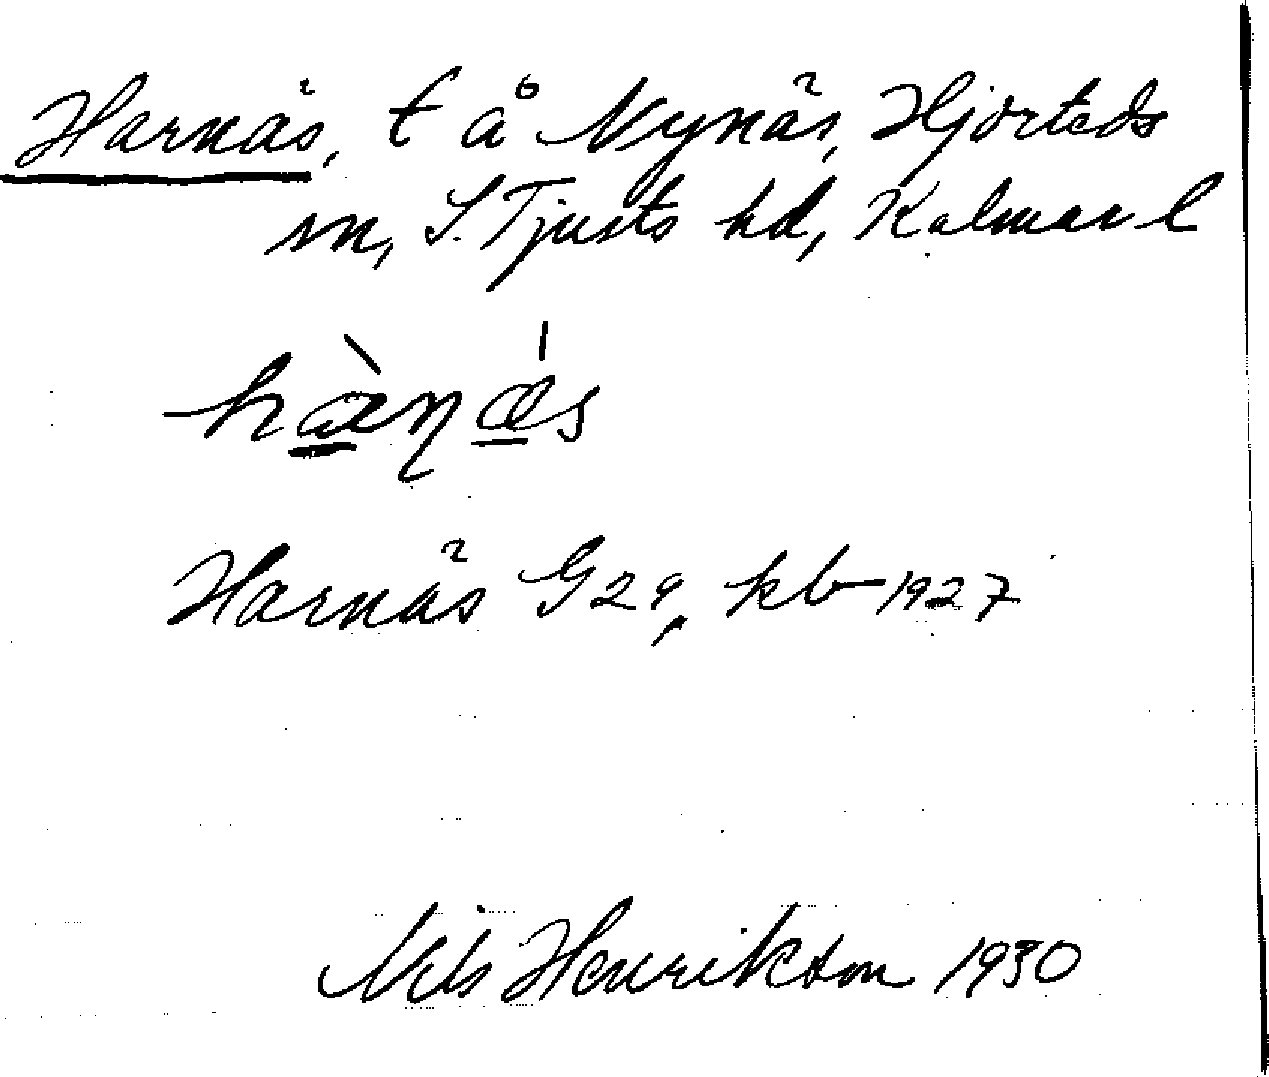 Harnäs, t å Nynäs, Hjorteds
sn, S. Tjusts hd, Kalmar l
Harnäs G29, kb 1927
Nils Henrikson 1930